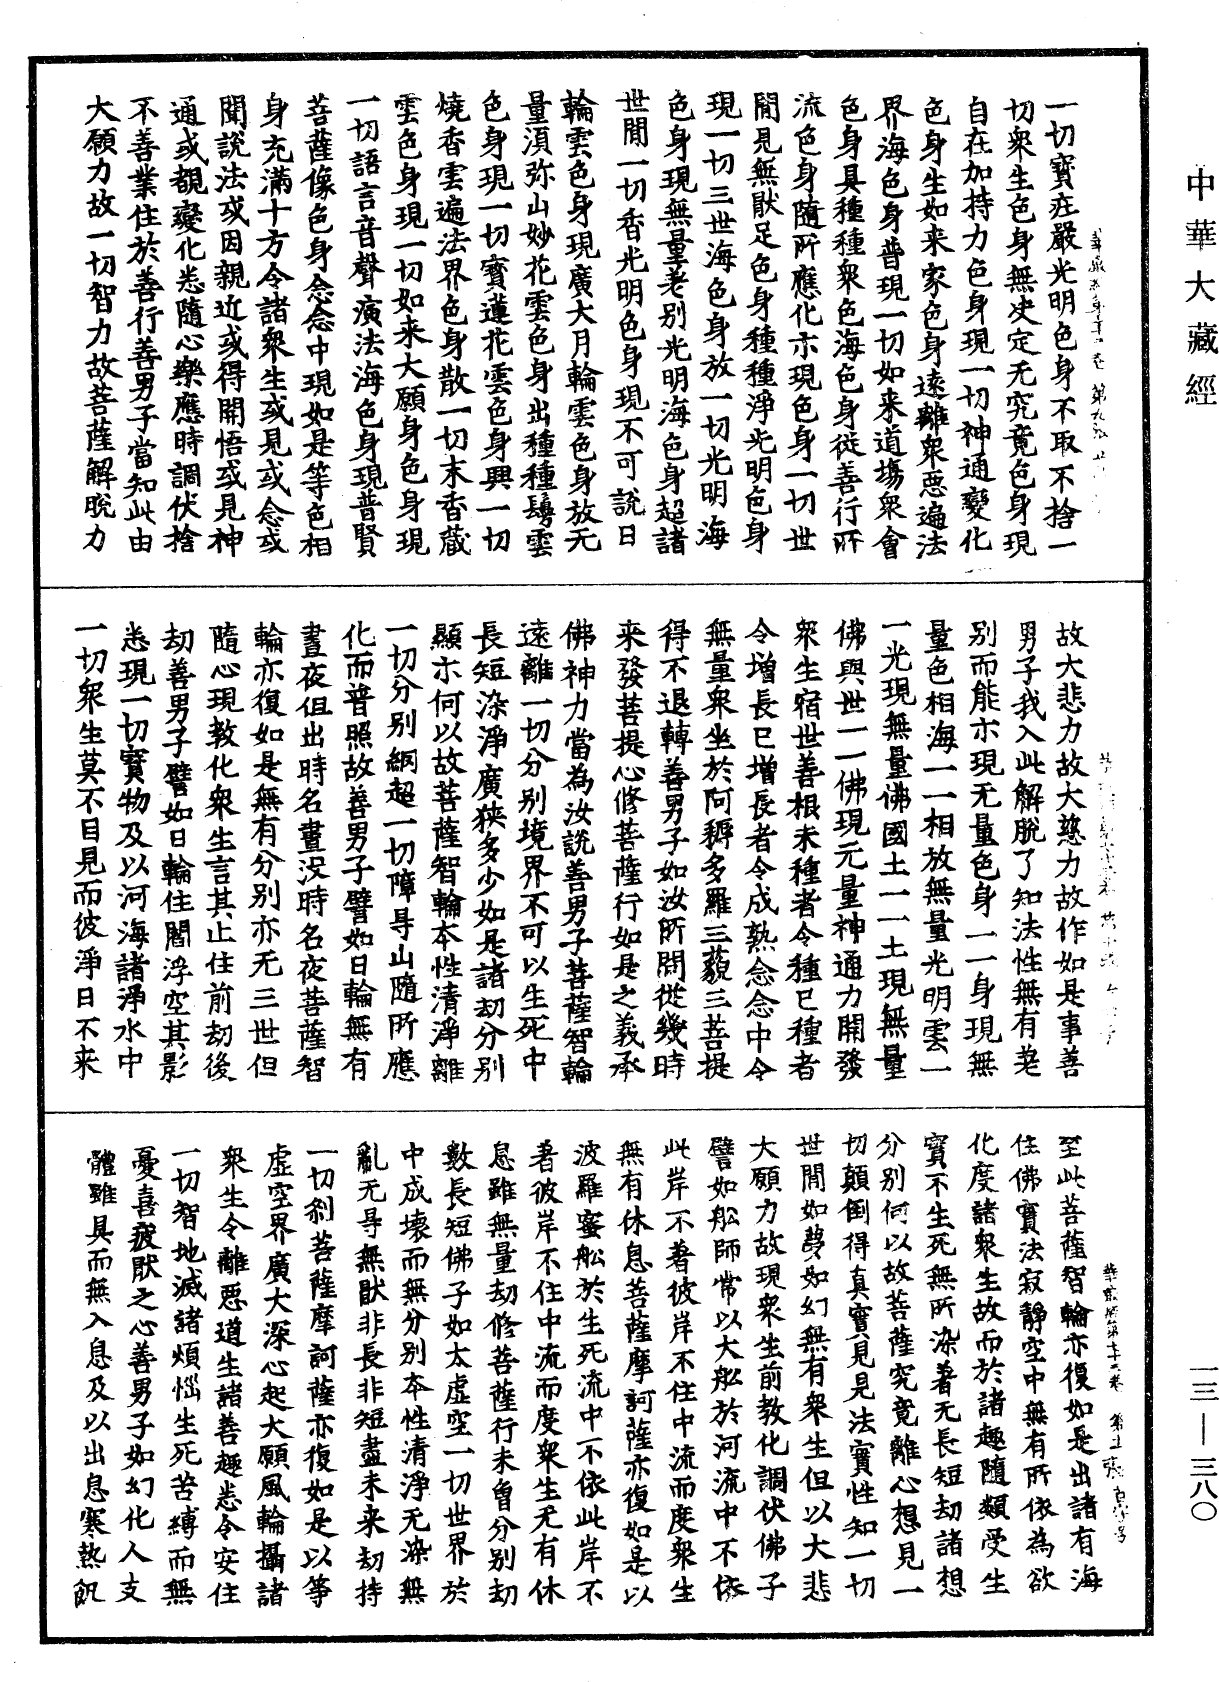 中華大藏經
一切寶莊嚴光明色身不取不捨一
切衆生色身無决定无究竟色身現
自在加持力色身現一切神通變化
色身生如来家色身遠離衆惡遍法
界海色身普現一切如来道場衆會
色身具種種衆色海色身從善行所
流色身隨所應化示現色身一切世
間見無猒足色身種種淨光明色身
現一切三世海色身放一切光明海
色身現無量差别光明海色身超諸
世間一切香光明色身現不可說日
輪雲色身現廣大月輪雲色身放无
量湏弥山妙花雲色身出種種鬘雲
色身現一切寶蓮花雲色身興一切
燒香雲遍法界色身散一切末香藏
雲色身現一切如来大願身色身現
一切語言音聲演法海色身現普賢
菩薩像色身念念中現如是等色相
身充滿十方令諸衆生或見或念或
聞說法或因親近或得開悟或見神
通或覩變化悉隨心樂應時調伏捨
不善業住於善行善男子當知此由
大願力故一切智力故菩薩解脫力
故大悲力故大慈力故作如是事善
男子我入此解脫了知法性無有差
别而能示現无量色身一一身現無
量色相海一一相放無量光明雲一
一光現無量佛國土一一土現無量
佛興世一一佛現无量神通力開發
衆生宿世善根未種者令種已種者
令增長已增長者令成熟念念中令
無量衆坐於阿耨多羅三藐三菩提
得不退轉善男子如汝所問從幾時
来發菩提心修菩薩行如是之義承
佛神力當為汝說善男子菩薩智輪
遠離一切分别境界不可以生死中
長短染淨廣狹多少如是諸刼分别
顯示何以故菩薩智輪本性清淨離
一切分别網超一切障㝵山隨所應
化而普照故善男子譬如日輪無有
晝夜但出時名晝没時名夜菩薩智
輪亦復如是無有分别亦无三世但
隨心現教化衆生言其止住前劫後
劫善男子譬如日輪住閻浮空其影
悉現一切寳物及以河海諸淨水中
一切衆生莫不目見而彼淨日不来
至此菩薩智輪亦復如是出諸有海
住佛實法寂靜空中無有所依為欲
化度諸衆生故而於諸趣隨類受生
實不生死無所染著无長短劫諸想
分别何以故菩薩究竟離心想見一
切顛倒得真實見見法實性知一切
世間如夢如幻無有衆生但以大悲
大願力故現衆生前教化調伏佛子
譬如舩師常以大舩於河流中不依
此岸不著彼岸不住中流而度衆生
無有休息菩薩摩訶薩亦復如是以
波羅蜜舩於生死流中不依此岸不
著彼岸不住中流而度衆生无有休
息雖無量劫修菩薩行未曾分别劫
數長短佛子如太虛空一切世界於
中成壞而無分别本性清淨无染無
亂无㝵無猒非長非短盡未来劫持
一切刹菩薩摩訶薩亦復如是以等
虛空界廣大深心起大願風輪攝諸
衆生令離惡道生諸善趣悉令安住
一切智地滅諸煩惱生死苦縛而無
憂喜疲猒之心善男子如幻化人支
體雖具而無入息及以出息寒熱飢
一三—三八〇